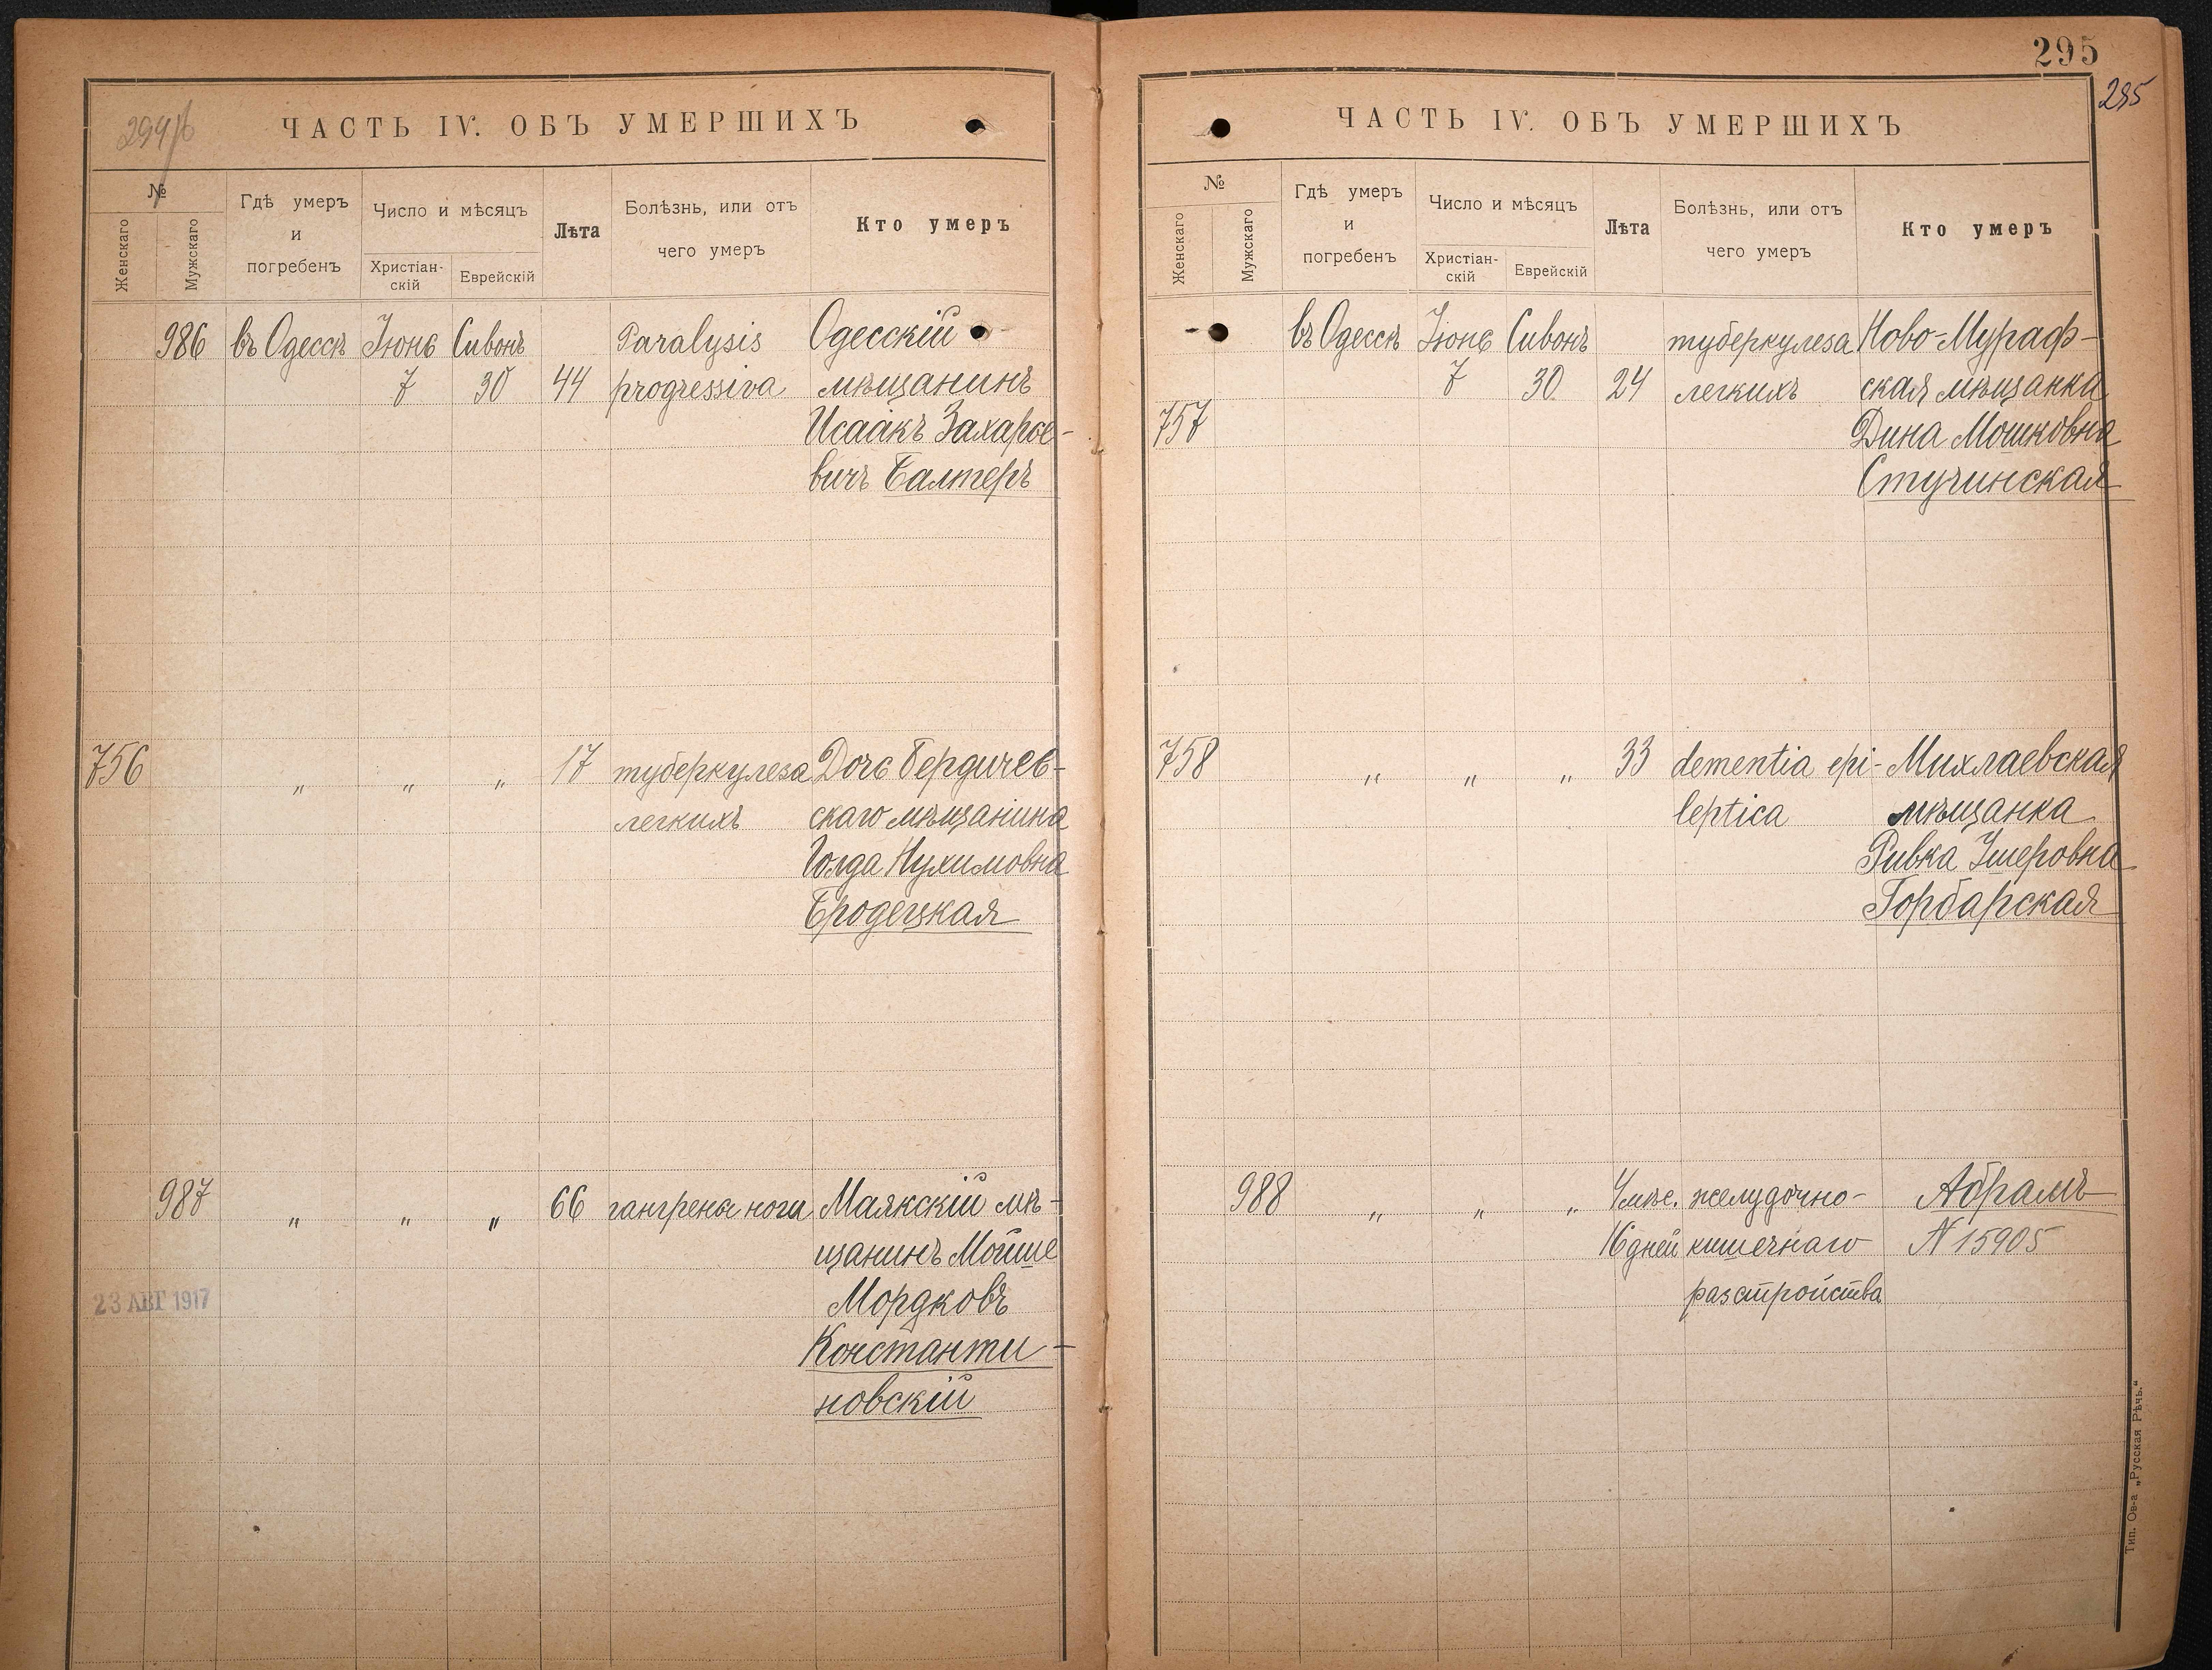 294/б
ЧАСТЬ IV. ОБЪ УМЕРШИХЪ
№
Женскаго
Мужскаго
Гдѣ умеръ
и
погребенъ
Число и мѣсяцъ
Христіан-
скій
Еврейскій
Лѣта
Болѣзнь, или отъ
чего умеръ
Кто умеръ
986 въ Одессѣ Іюнь Сивонъ Paralysis Одесскій
7 30 44 progressiva мѣщанинъ
Исаакъ Захаро-
вичъ Балтеръ
756 „ „ „ 17 туберкулеза Дочь Бердичев-
легкихъ скаго мѣщанина
Голда Нухимовна
Бродецкая
987 „ „ „ 66 гангрена ноги Маякскій мѣ-
щанинъ Мойше
23 АВГ 1917 Мордковъ
Константи-
новскій
295
295
ЧАСТЬ IV. ОБЪ УМЕРШИХЪ
№
Женскаго
Мужскаго
Гдѣ умеръ
и
погребенъ
Число и мѣсяцъ
Христіан-
скій
Еврейскій
Лѣта
Болѣзнь, или отъ
чего умеръ
Кто умеръ
въ Одессѣ Іюнь Сивонъ туберкулеза Ново-Мураф-
7 30 24 легкихъ ская мѣщанка
757 Дина Мошковна
Стучинская
758 „ „ „ 33 dementia epi- Михлаевская
leptica мѣщанка
Ривка Ушеровна
Горбарская
988 „ „ „ 4 мѣс. желудочно- Абрамъ
16 дней кишечнаго N 15905
разстройства
Тип. Ов-а „Русская Рѣчь.“